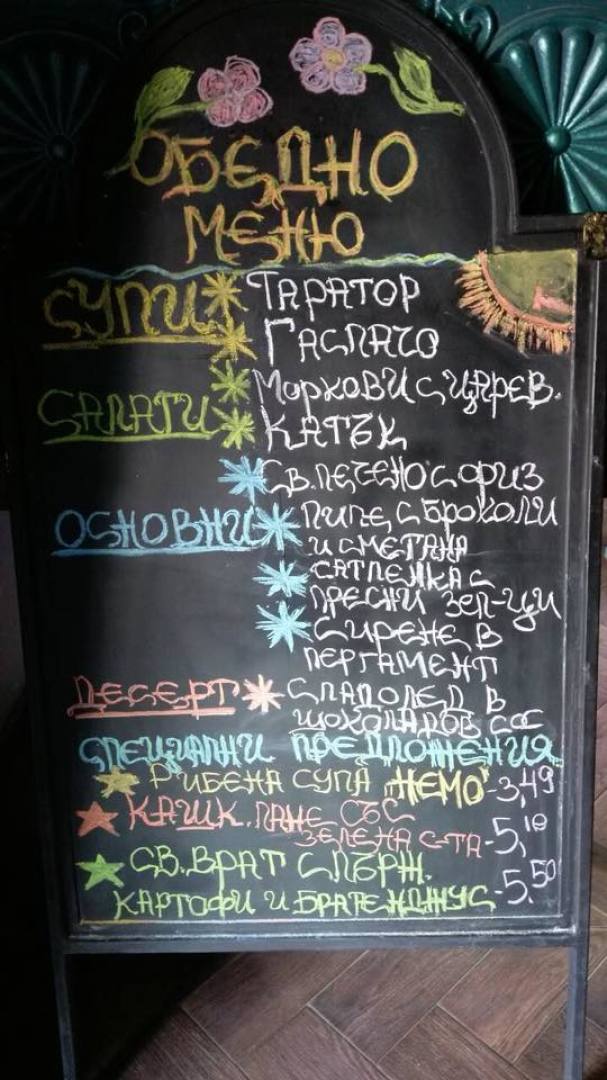 ОБЕДНО
МЕНЮ
СУПИ * ТАРАТОР
* ГАСПАЧО
* МОРКОВИ С ЦАРЕВ.
САЛАТИ * КАТЪК
* СВ. ПЕЧЕНО С ОРИЗ
ОСНОВНИ * ПИЛЕ С БРОКОЛИ
И СМЕТАНА
* САТЛЕМКА С
ПРЕСНИ ЗЕЛ-ЦИ
* СИРЕНЕ В
ПЕРГАМЕНТ
ДЕСЕРТ * СЛАДОЛЕД В
ШОКОЛАДОВ СОС
СПЕЦИАЛНИ ПРЕДЛОЖЕНИЯ
РИБЕНА СУПА "НЕМО" - 3,49
КАШК. ПАНЕ СЪС
ЗЕЛЕНА С-ТА - 5,10
СВ. ВРАТ С ПЪРЖ.
КАРТОФИ И БРАТЕНДЖУС - 5.50